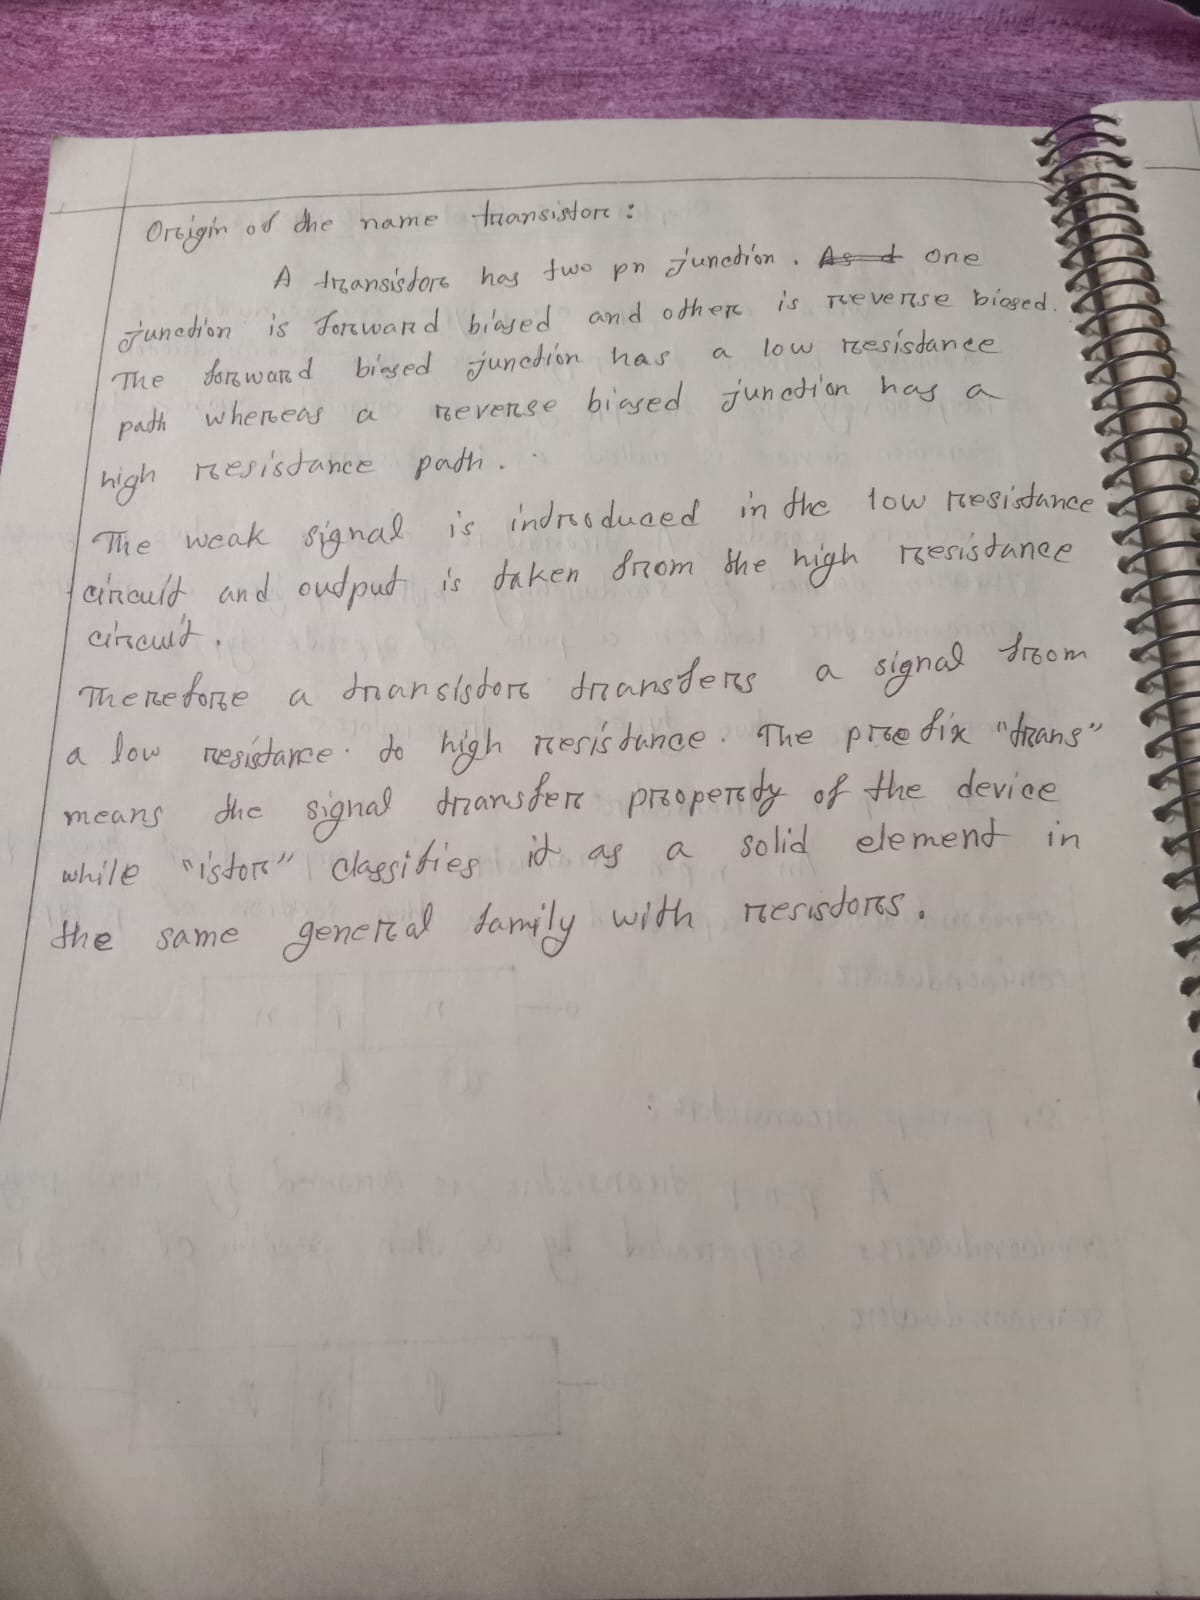 Origin of the name transistor:
A transistor has two pn junction. As d one
junction is forward biased and other is reverse biased.
The forward biased junction has a low resistance
path whereas a reverse biased junction has a
high resistance path.
The weak signal is introduced in the low resistance
circuit and output is taken from the high resistance
circuit.
Therefore a transistor transfers a signal from
a low resistance to high resistance. The prefix "trans"
means the signal transfer property of the device
while "istor" classifies it as a solid element in
the same general family with resistors.